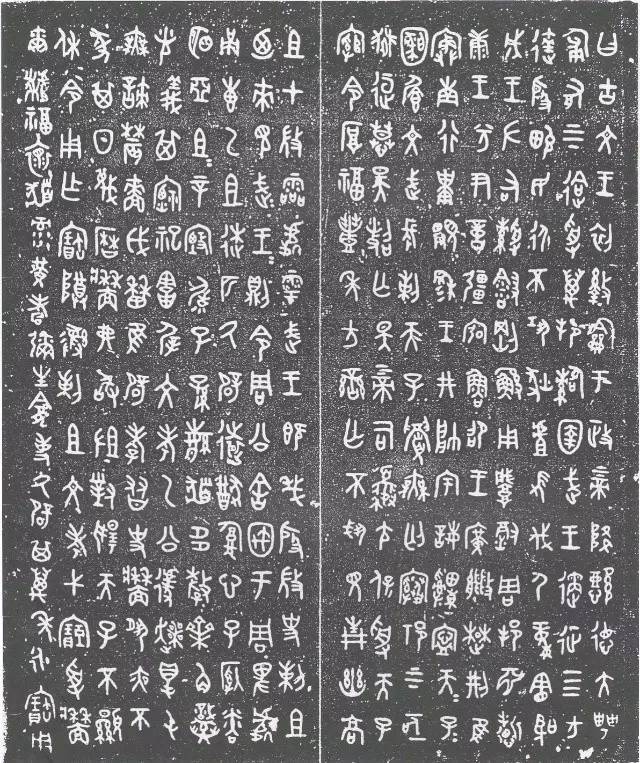 曰古文王初盭龢于政上帝降懿德大甹
匍有上下迨受萬邦䚄圉武王遹征四方
達殷畯民永不巩狄虘伐尸童憲聖
成王左右綬㪤剛鯀用肇徹周邦淵哲
康王兮尹億疆宏魯昭王廣能楚荊隹
寏南行祗顯穆王井帥宇誨申寧天子
天子纘文武長剌天子眉無匃祁上下亟
熙桓慕昊照亡斁上帝司夒尢保受天子
綰令厚福豐年方蠻亡不見青幽高
祖才微靈處雩武王既𢦏殷微史剌祖
廼來見武王武王則令周公舍㝢于周卑處
甬惠乙祖逑匹厥辟遠猷腹心子納粦
明亞祖祖辛毓子孫繁祓多釐齊角熾
光義其禋祀胡遲文考乙公遽爽得純
無諫農穡戉曆隹辟孝友史墙夙夜不
墜其日蔑曆墙弗敢沮對揚天子丕顯
休令用作寶尊彝剌祖文考弋貯受墙
爾福懷祓祿黃耇彌生龕事厥辟其萬年永寶用